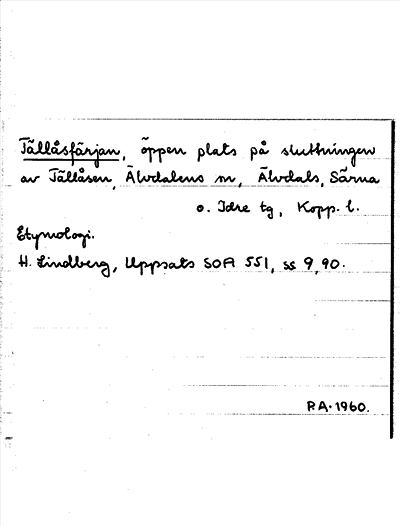 Tällåsfärjan, öppen plats på sluttningen
av Tällåsen, Älvdalens sn, Älvdals, Särna
o. Idre tg, Kopp. l.
Etymologi.
H. Lindberg, Uppsats SOA 551, ss 9, 90.
RA. 1960.